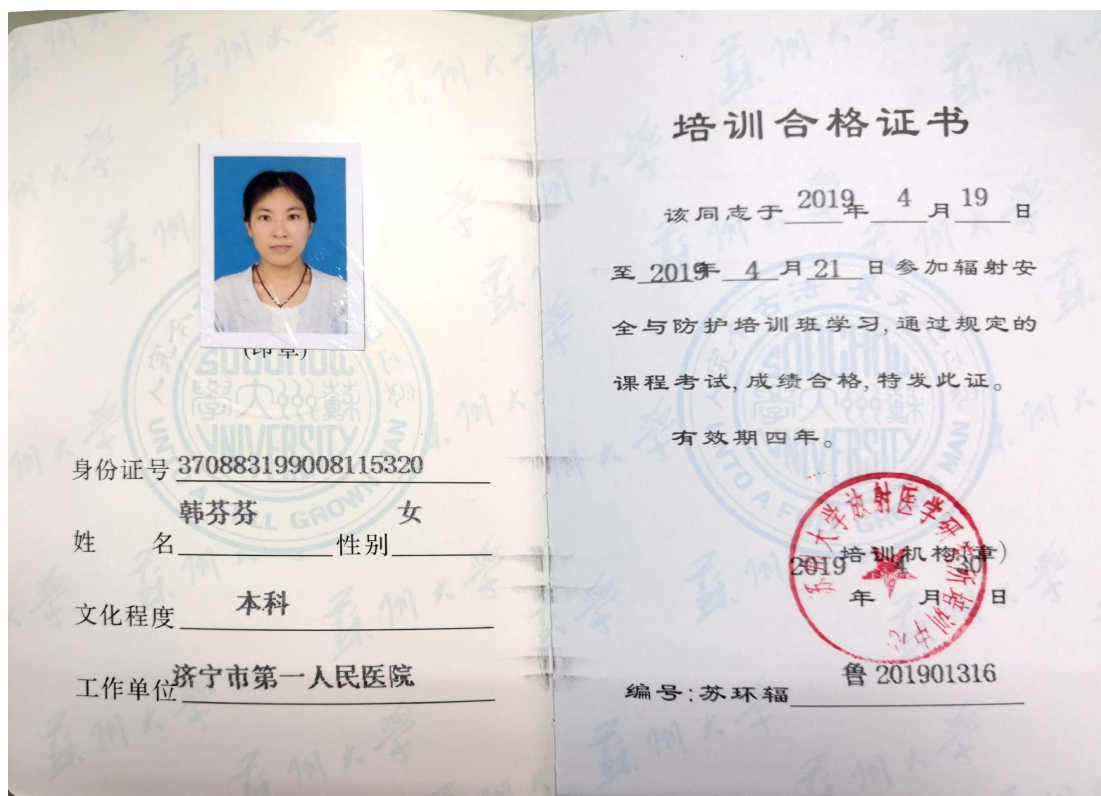 (印章)
身份证号 370883199008115320
姓 名 韩芬芬 性别 女
文化程度 本科
工作单位 济宁市第一人民医院
培训合格证书
该同志于 2019 年 4 月 19 日
至 2019 年 4 月 21 日参加辐射安
全与防护培训班学习,通过规定的
课程考试,成绩合格,特发此证。
有效期四年。
培训机构(章)
2019 年 4 月 30 日
苏州大学放射医学研究所培训中心
编号:苏环辐 鲁 201901316
SOOCHOW
UNIVERSITY
UNTO A FULL GROWN MAN
蘇州大學